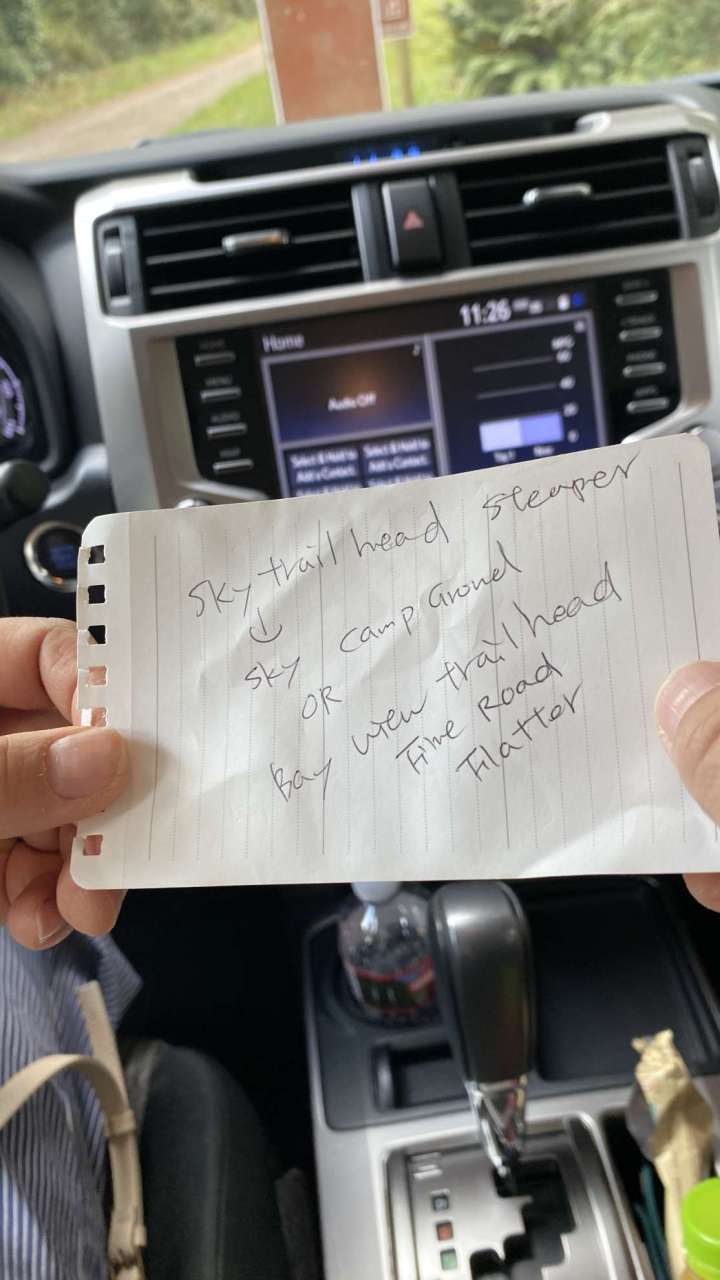 11:26
Home
Audio Off
Select & Hold to
Add a Contact
Select & Hold to
Add a Contact
sky trail head steaper
↓
sky camp Ground
OR
Bay view trail head
Fire Road
Flatter